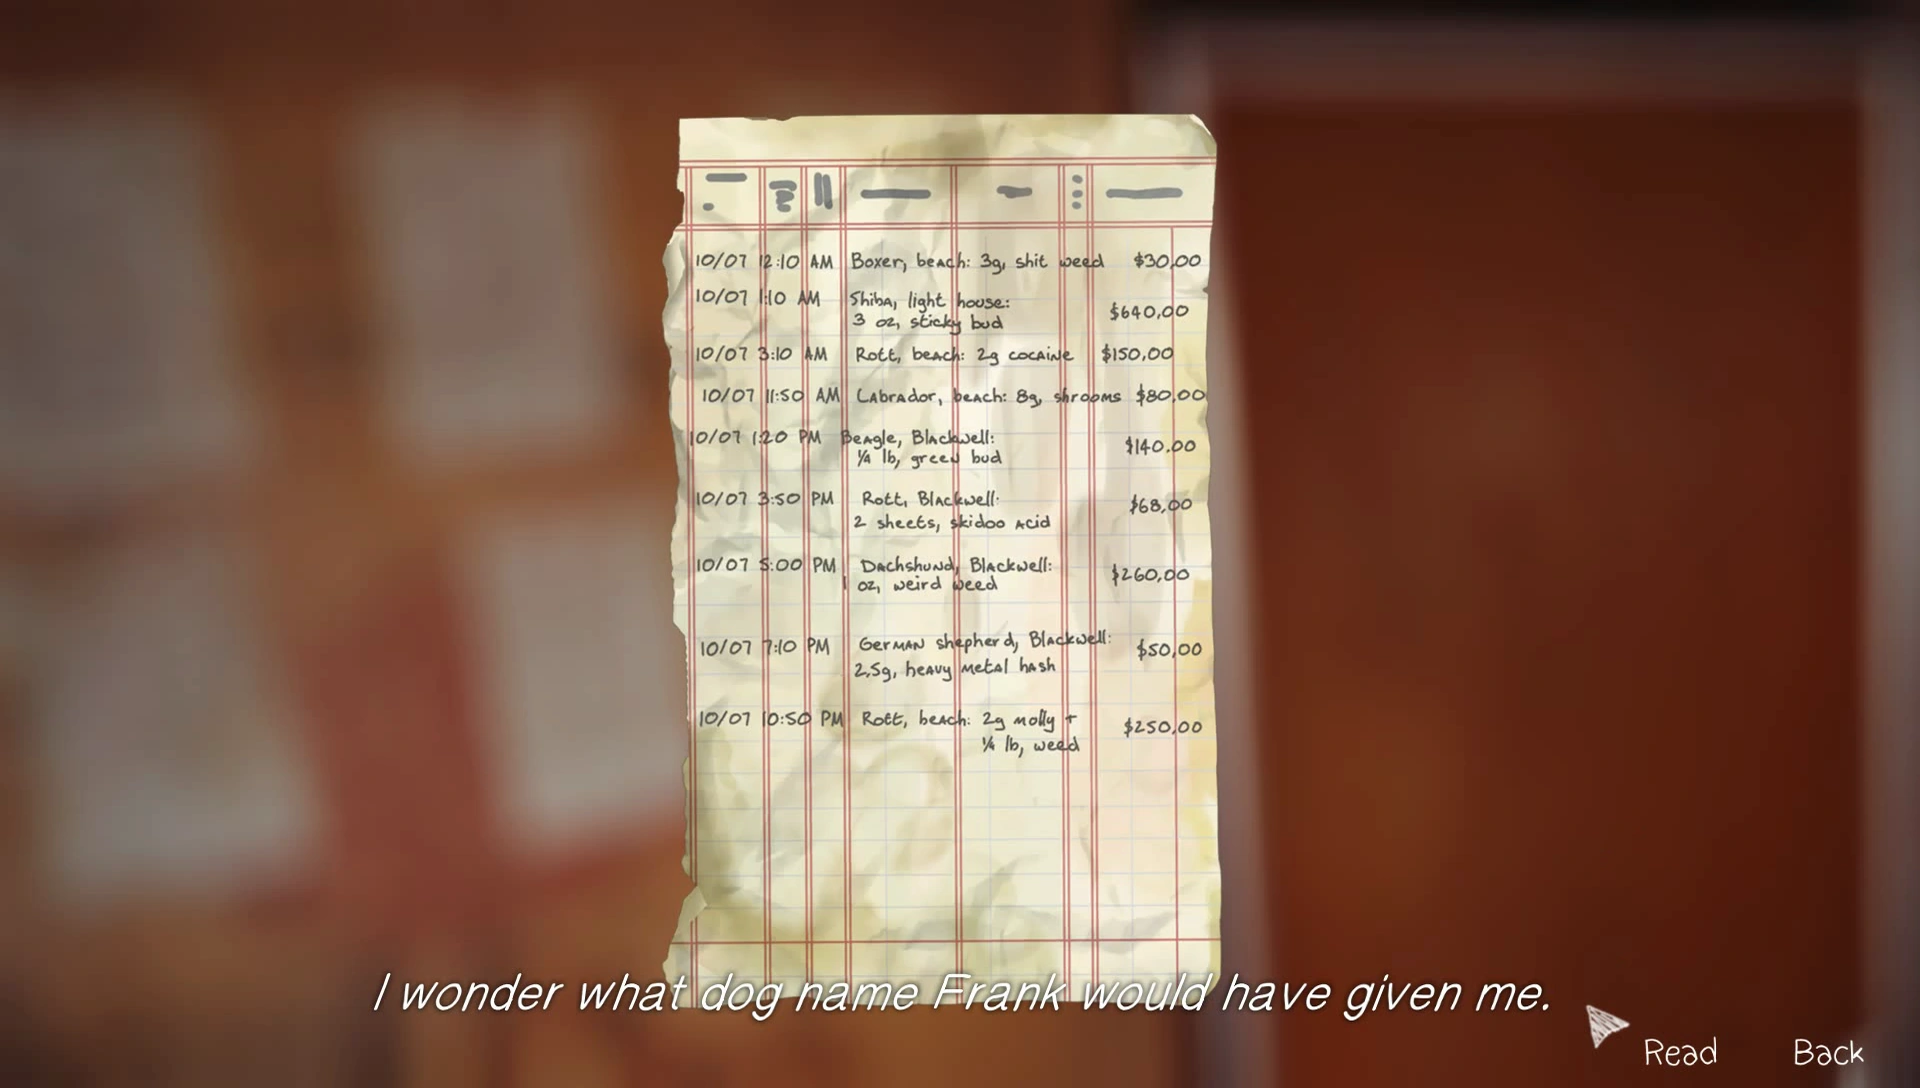 10/07 12:10 AM Boxer, beach: 3g, shit weed $30,00
10/07 1:10 AM Shiba, light house:
3 oz, sticky bud $640,00
10/07 3:10 AM Rott, beach: 2g cocaine $150,00
10/07 11:50 AM Labrador, beach: 8g, shrooms $80,00
10/07 1:20 PM Beagle, Blackwell: $140.00
1/4 lb, green bud
10/07 3:50 PM Rott, Blackwell: $68,00
2 sheets, skidoo acid
10/07 5:00 PM Dachshund, Blackwell: $260,00
1 oz, weird weed
10/07 7:10 PM German shepherd, Blackwell: $50,00
2,5g, heavy metal hash
10/07 10:50 PM Rott, beach: 2g molly + $250,00
1/4 lb, weed
I wonder what dog name Frank would have given me.
Read Back